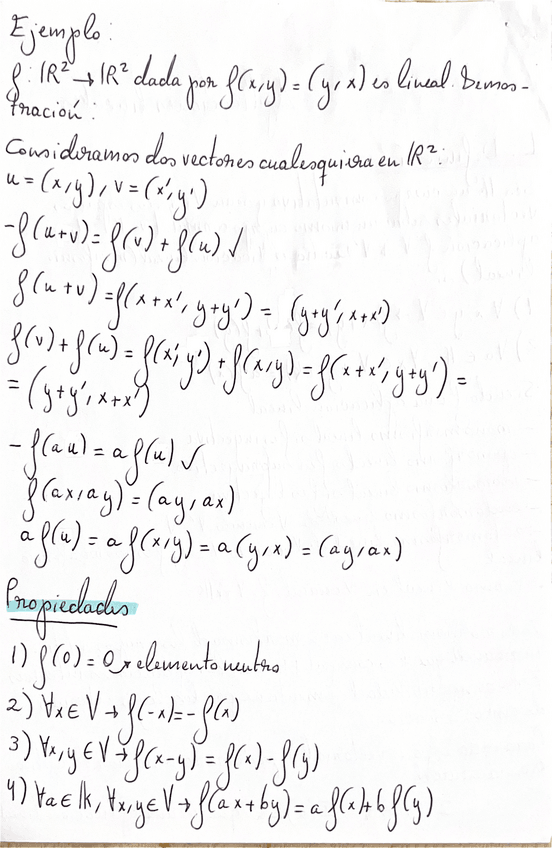 Ejemplo:
f: ℝ² → ℝ² dada por f(x,y) = (y,x) es lineal. Demos-
tración:
Consideramos dos vectores cualesquiera en ℝ²:
u = (x,y), v = (x',y')
- f(u+v) = f(v) + f(u) ✓
f(u+v) = f(x+x', y+y') = (y+y', x+x')
f(v) + f(u) = f(x',y') + f(x,y) = f(x+x', y+y') =
= (y+y', x+x')
- f(au) = a f(u) ✓
f(ax,ay) = (ay,ax)
a f(u) = a f(x,y) = a(y,x) = (ay,ax)
Propiedades
1) f(0) = 0 → elemento neutro
2) ∀x ∈ V → f(-x) = -f(x)
3) ∀x,y ∈ V → f(x-y) = f(x) - f(y)
4) ∀a ∈ 𝕜, ∀x,y ∈ V → f(ax+by) = a f(x) + b f(y)